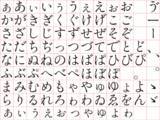 ぁあぃいぅうぇえぉお
かがきぎくぐけげこご
さざしじすずせぜそぞ
ただちぢっつづてでとど
なにぬねのはばぱひびぴ
ふぶぷへべぺほぼぽ
まみむめもゃやゅゆょよ
らりるれろゎわゐゑをん